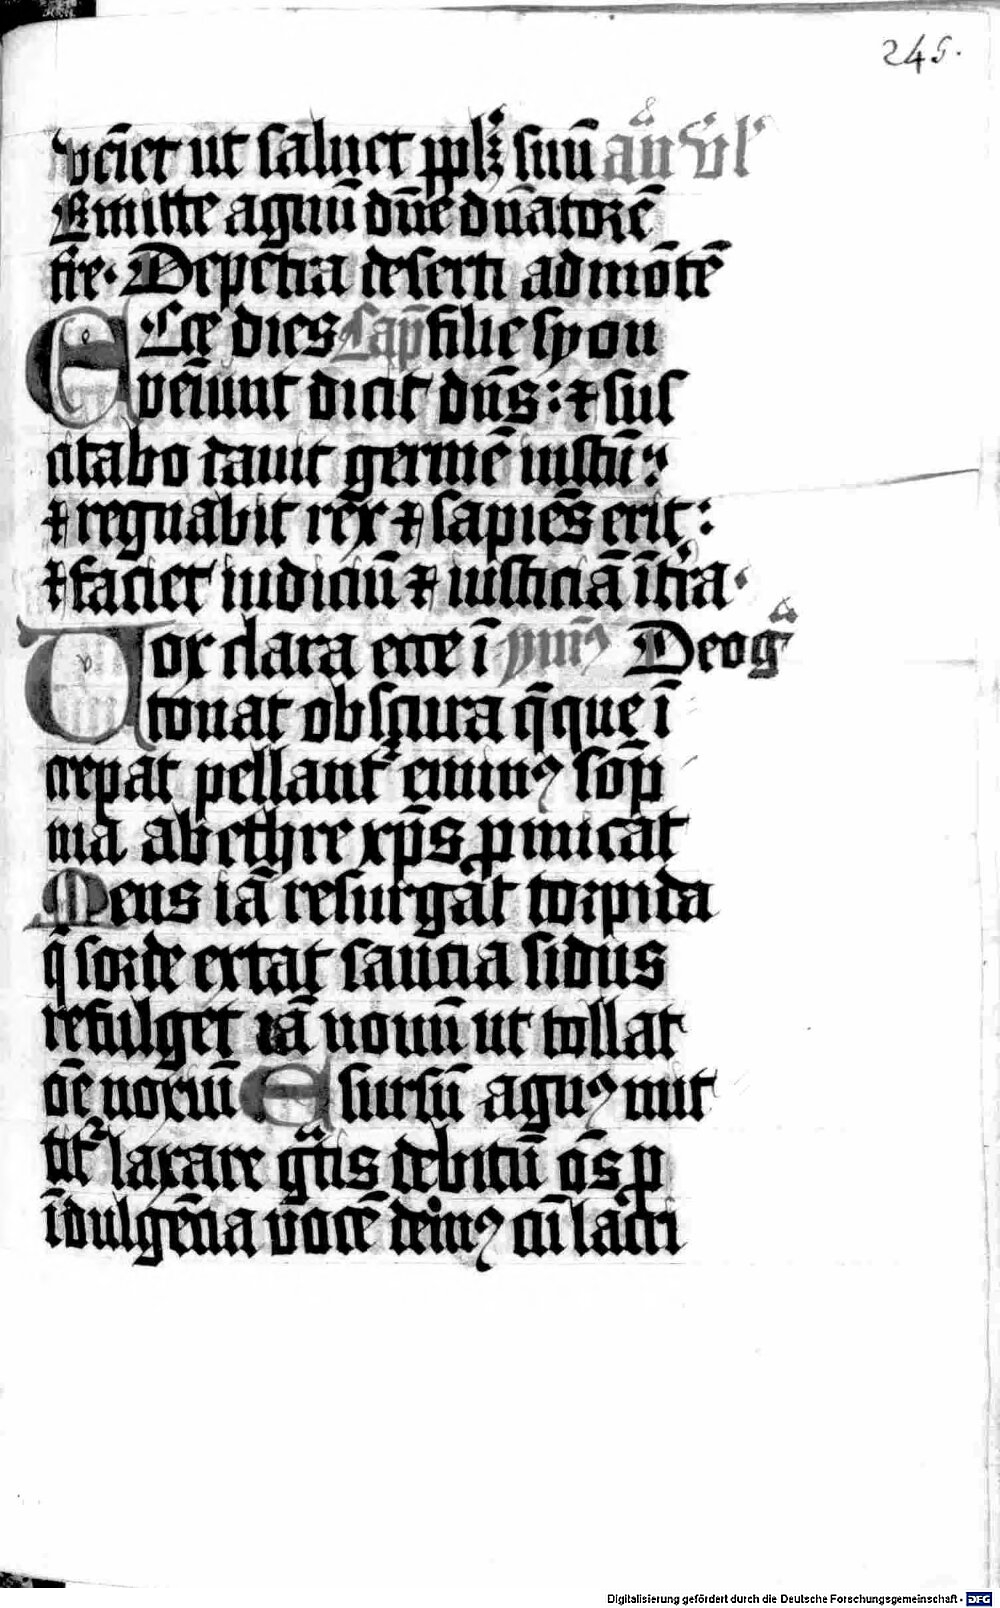 245.
vēiet ut saluet pplꝫ suū añ vl'
Emitte agnū dūe dn̄atorē
tr̄e. De petra deserti ad mōtē
Ecce dies Cap̄ filie syon
veniunt dicit dn̄s: ⁊ sus
citabo dauit germē iustū:
⁊ regnabit rex ⁊ sapiēs erit:
⁊ faciet iudiciū ⁊ iusticiā ī tr̄a.
Vox clara ecce ī ymꝰ Deo gͣ
tonat obscura q̄que ī
crepat pellantr̄ eminꝰ sōp
nia ab ethre xp̄s ꝓmicat
Mens iā resurgat torpida
q̄ sorde extat saucia sidus
refulget iā nouū ut tollat
ōe noxiū E sursū agnꝰ mit
titr̄ laxare gͣtis debitū ōs ꝓ
īdulgētia vocē demꝰ cū lacri
Digitalisierung gefördert durch die Deutsche Forschungsgemeinschaft - DFG